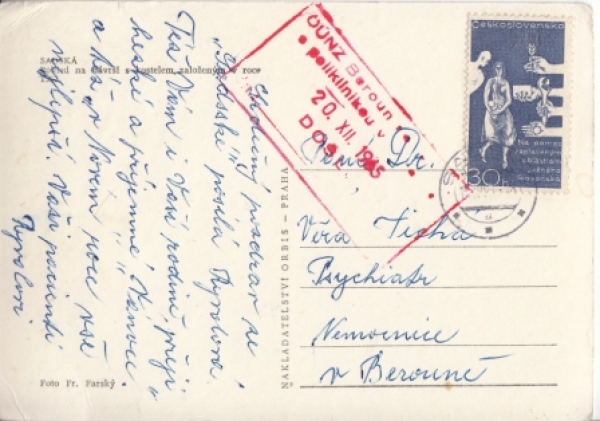 SADSKÁ
Pohled na návrší s kostelem, založeným v roce
Srdečný pozdrav ze
"Sadské" posílá Ryvolová.
Též Vám i Vaší rodině přeji
hezké a příjemné "Vánoce"
a též v Novém roce vše
nejlepší. Vaši pacienti
Ryvolovi
Foto Fr. Farský
NAKLADATELSTVÍ ORBIS – PRAHA
OÚNZ Beroun
s poliklinikou v
20. XII. 1965
DOŠ
Československo
Na pomoc
záplavou
oblastem
jižného
Slovenska
30h
Paní Dr.
Věra Tichá
Psychiatr
Nemocnice
v Berouně